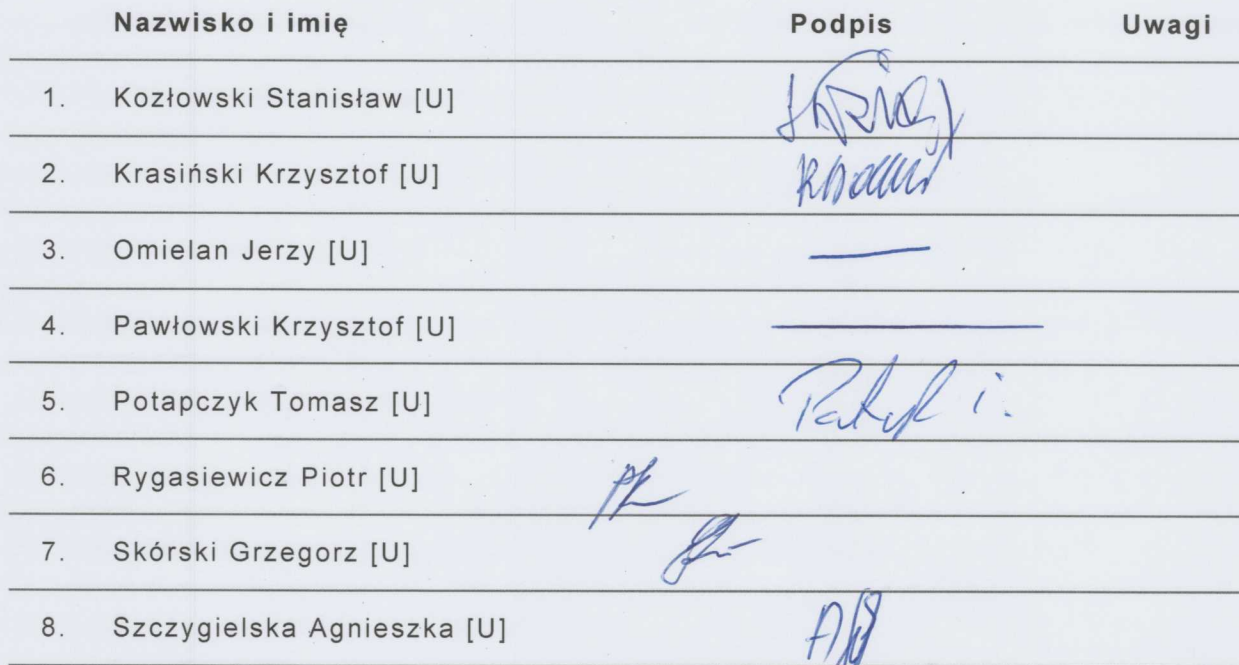 Nazwisko i imię Podpis Uwagi
1. Kozłowski Stanisław [U]
2. Krasiński Krzysztof [U]
3. Omielan Jerzy [U]
4. Pawłowski Krzysztof [U]
5. Potapczyk Tomasz [U]
6. Rygasiewicz Piotr [U]
7. Skórski Grzegorz [U]
8. Szczygielska Agnieszka [U]